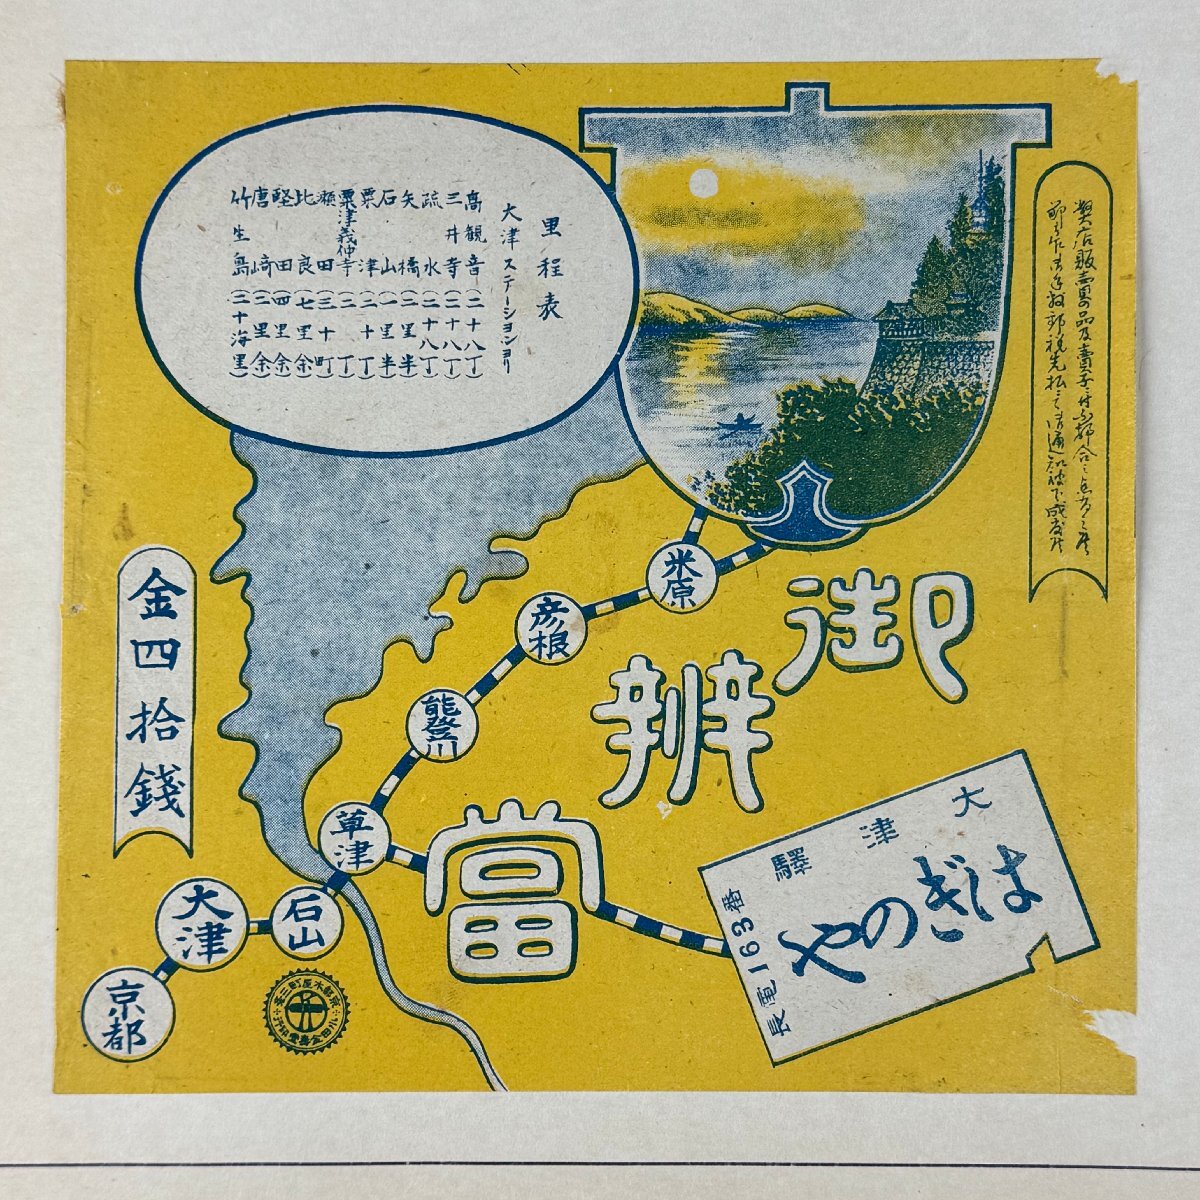 里程表
大津ステーションヨリ
高観音(二十八丁)
三井寺(二十八丁)
疏水(二十八丁)
矢橋(二里半)
石山(一里半)
粟津(二十丁)
粟津義仲寺(二丁)
瀬田(三十町)
比良(七里余)
堅田(四里余)
唐崎(二里余)
竹生島(二十海里)
御辨當
米原
彦根
能登川
草津
石山
大津
京都
金四拾錢
大津驛
はぎのや
長電163番